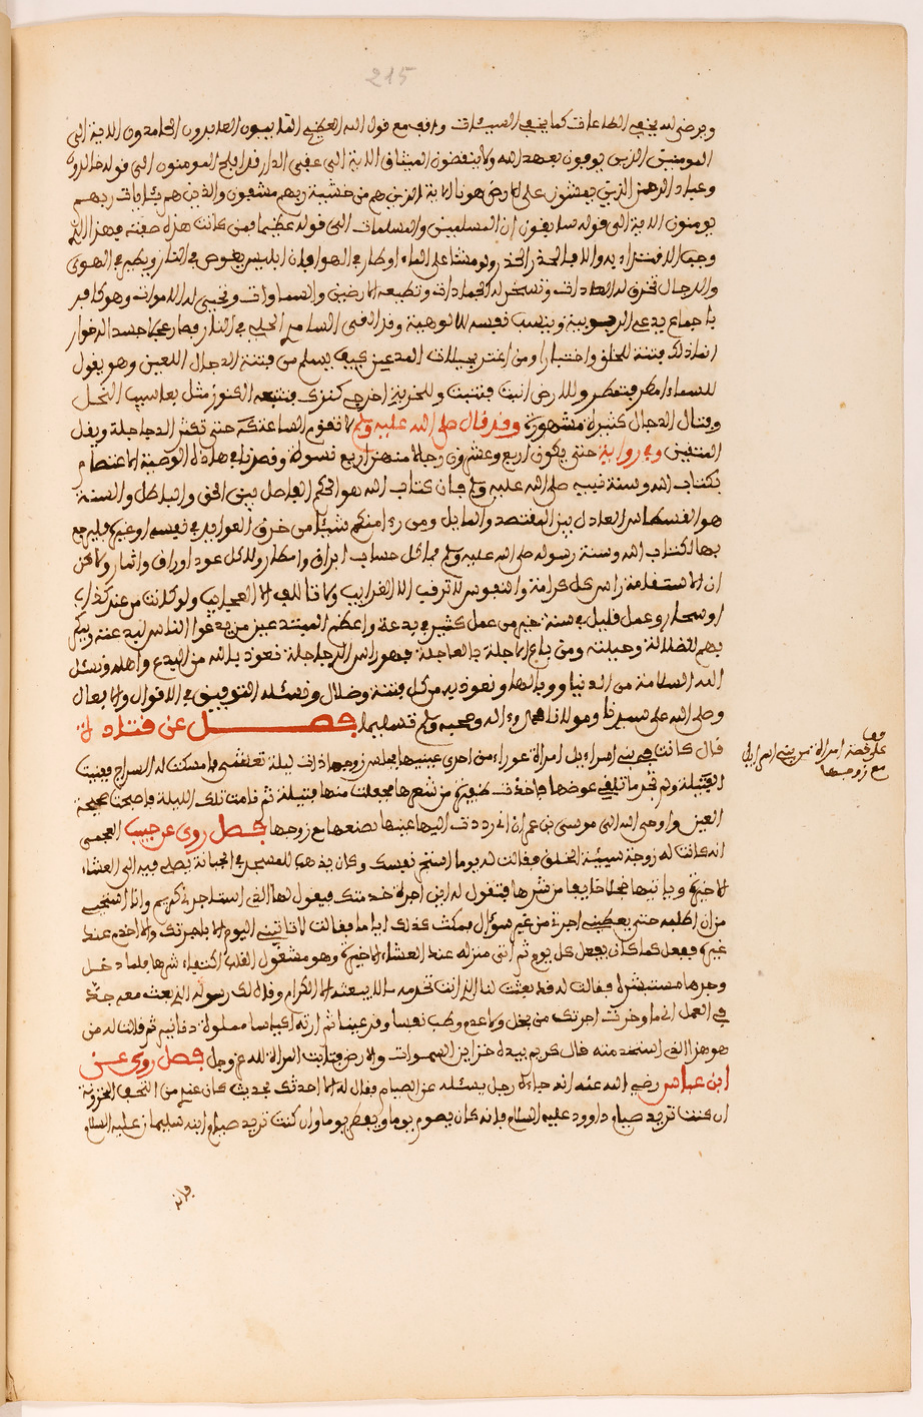 215
وعباد الرحمن الذين يمشون على الارض هونا الاية الذين هم من خشية ربهم مشفقون والذين هم بئايات ربهم
يومنون الاية الى قوله سابقون ان المسلمين والمسلمات الى قوله عظيما فمن كانت هذه صفته فهذا الذي
وجب الاقتداء به والا فالحذر الحذر ولو مشا على الماء او طار في الهوا فان ابليس يغوص في النار ويطير في الهوى
والدجال تخرق له العادات وتسخر له الجمادات وتطيعه الارضين والسماوات وتحيى له الاموات وهو كافر
باجماع يدعى الربوبية وينسب نفسه للالوهية وقد القى السامري الحلي في النار فصار عجلا جسدا له خوار
انما ذلك فتنة للخلق واختبارا ومن اغتر بحيلات المدعين كيف يسلم من فتنة الدجال اللعين وهو يقول
للسماء امطر فتمطر وللارض انبت فتنبت وللخربة اخرجي كنزك فتتبعه الكنوز مثل يعاسيب النحل
وقتال الدجال كثيرة مشهورة وقد قال صلى الله عليه وسلم لا تقوم الساعة حتى تكثر الدجاجلة ويقل
المتقين وفي رواية حتى يكون اربع وعشرون رجلا منهن اربع نسوة وقصرنا في هذه الوصية الاعتصام
بكتاب الله وسنة نبيه صلى الله عليه وسلم فان كتاب الله هو الحكم الفاصل بين الحق والباطل والسنة
هو القسطاس العادل بين المقتصد والمايل ومن رءا منكم شيئا من خرق العوايد في نفسه او غيره فليرجع
بها لكتاب الله وسنة رسوله صلى الله عليه وسلم فما كل حساب ابراق وامطار ولا كل عود اوراق واثمار ولا تخن
ان الاستقامة راس كل كرامة والنفوس لا ترقب الا الغرايب ولا تالف الا العجايب ولو كانت من عند كذاب
او سحار وعمل قليل في سنة خير من عمل كثير في بدعة واعظم المبتدعين من يدعوا الناس لبدعته ويكم
بهم لضلالته وحيلته ومن باع الاجلة بالعاجلة فهو راس الدجاجلة نعوذ بالله من البدع واهله ونسئل
الله السلامة من الدنيا ووبالها ونعوذ به من كل فتنة وضلال ونسئله التوفيق في الاقوال والافعال
وصلى الله على سيدنا ومولانا محمد وءاله وصحبه وسلم تسليما فصل عن قتادة
قال كانت في بني اسراءيل امراة عوراء من احدى عينيها فجلس زوجها ذات ليلة تعشى فامسكت له السراج ففنيت
الفتيلة ولم تجد ما تلقي عوضها فاخذت ظفيرة من شعرها فجعلت منها فتيلة ثم نامت تلك الليلة فاصبحت صحيحة
العين واوحى الله الى موسى بن عمران اني رددت اليها عينها لصنعها مع زوجها فصل روي عن حبيب العجمي
انه كانت له زوجة سيئة الخلق فقالت له يوما استجر نفسك وكان يذهب للمسجد في الجبانة يصلي فيه الى العشاء
الاخيرة وياتيها خجلا خايفا من شرها فتقول له اين اجرة خدمتك فيقول لها الذي استاجرني كريم وانا استحيي
من ان اطلبه حتى يعطيني اجرة من غير سؤال فمكث كذلك اياما فقالت لا تاتيني اليوم الا باجرتك والا اخدم عند
غيره ففعل كما كان يفعل كل يوم ثم اتى منزله عند العشاء الاخيرة وهو مشغول القلب اكتفاء شرها فلما دخل
وجدها مستبشرة فقالت له قد بعث لنا الذي انت تخدمه ما لا يبعثه الا الكرام وقال لك رسوله الذي بعث معه جد
في العمل اني ما اخرت اجرتك من بخل ولا عدم وطب نفسا وقر عينا ثم ارته اكياسا مملوة دنانير ثم قالت له من
هو هذا الذي استخدمته قال كريم بيده خزاين السموات والارض فتابت المراة لله عز وجل فصل روي عن
ابن عباس رضي الله عنه انه جاءه رجل يسئله عن الصيام فقال له الا احدثك بحديث كان عندي من التحف المخزونة
ان كنت تريد صيام داوود عليه السلام فانه كان يصوم يوما ويفطر يوما وان كنت تريد صيام ابنه سليمان عليه السلام
قف
على قصة امراة من بني اسراءيل
مع زوجها
فانه